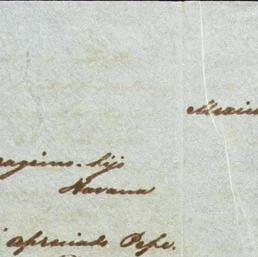 Mexico
ragimo. hijo
Havana
apreciado Pepe.